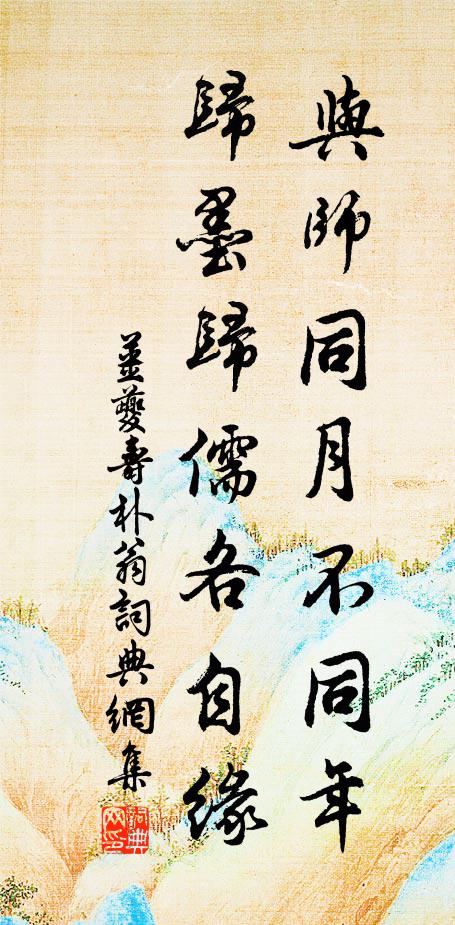 與師同月不同年
歸墨歸儒各自緣
姜夔壽朴翁詞典網集
詞典网印